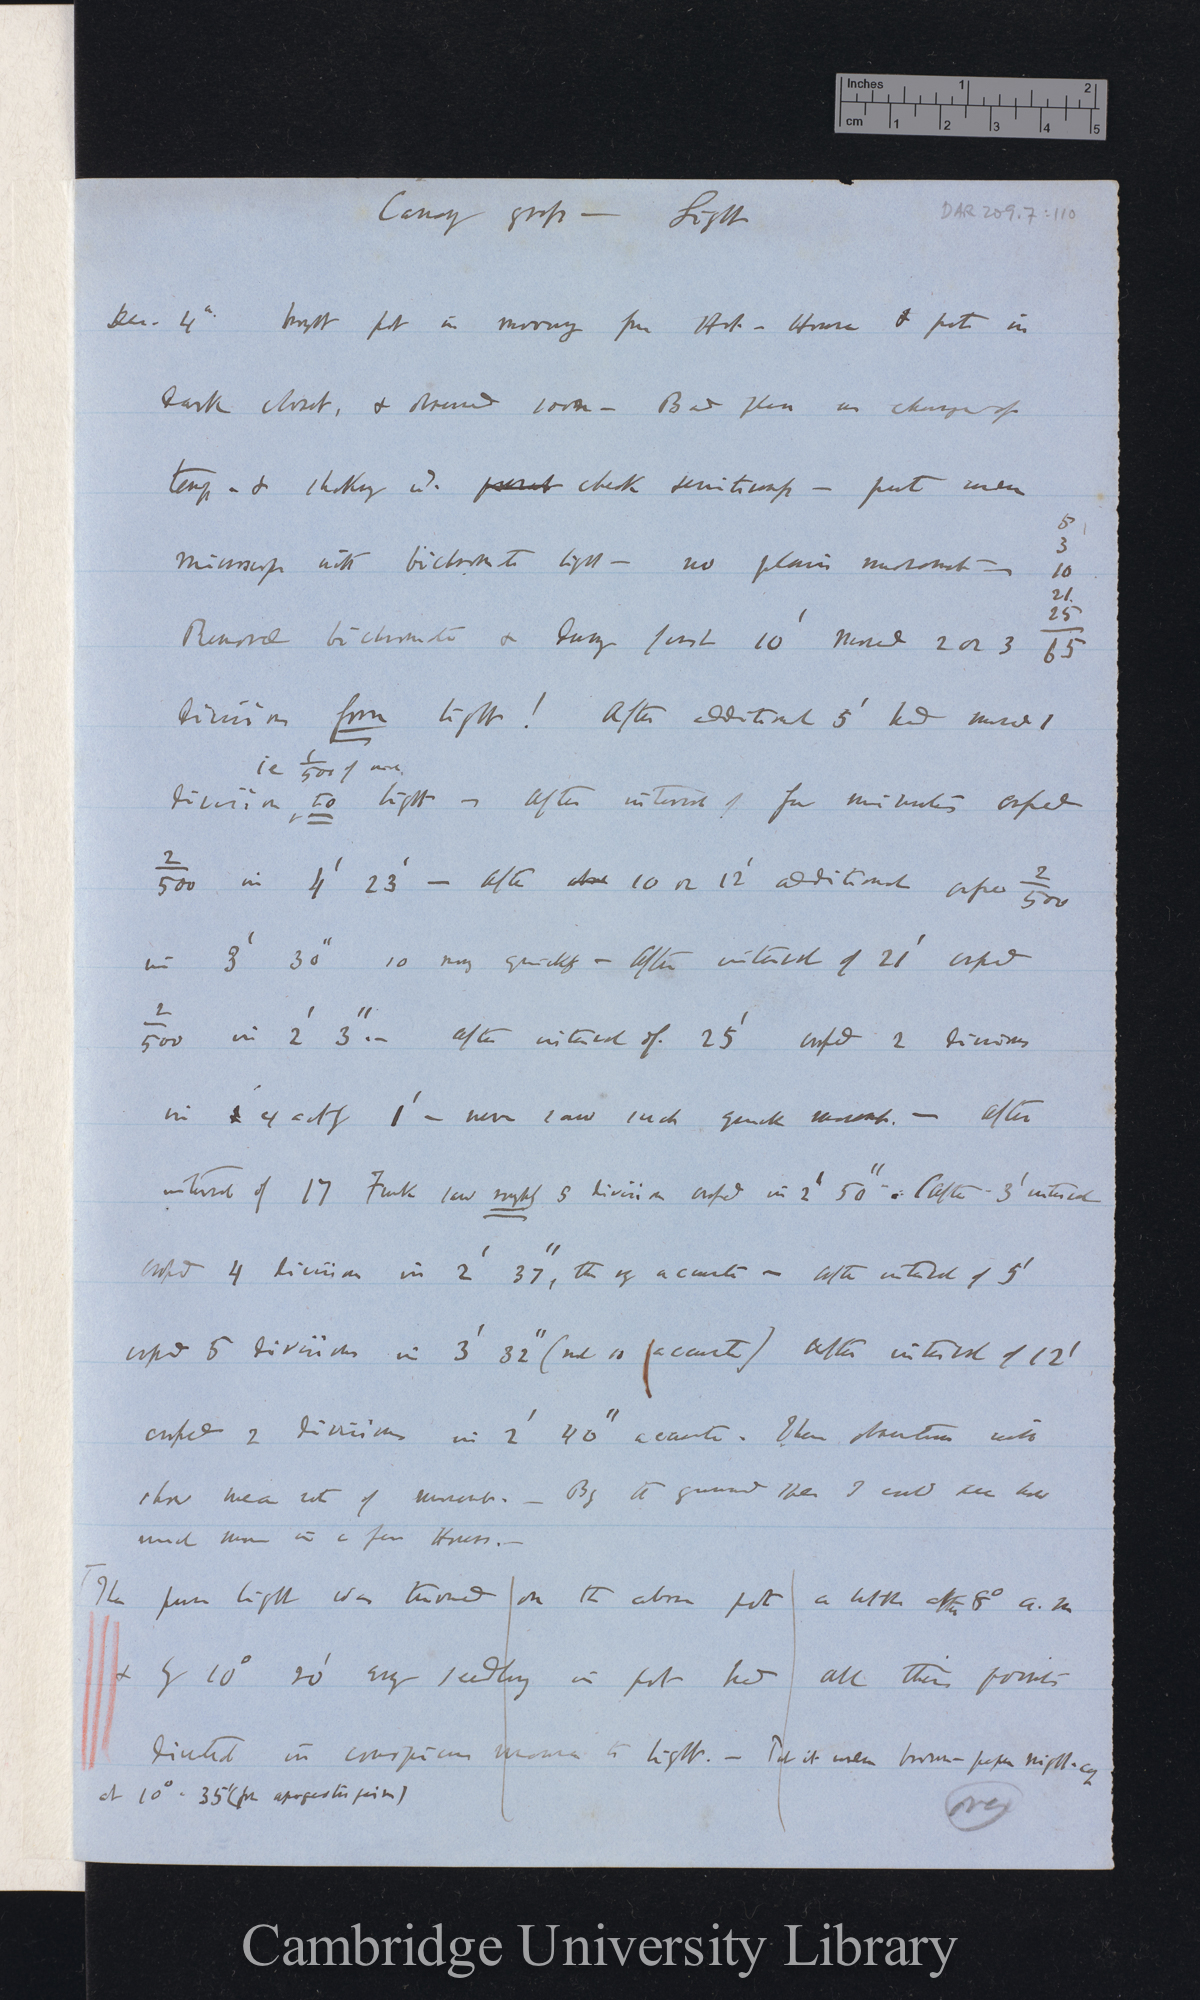 Inches 1 2
cm 1 2 3 4 5
Canary grass — Light
DAR 209.7:110
Dec. 4th. brought pot in morning from Hot-House & put in
dark closet, & observed room — Bad plan as change of
temp — & shaking wd. check sensitiveness — put under
microscope with bichromate light — no plain movement —
5
3
10
21
25
65
Removed bichromate & during first 10' moved 2 or 3
division from light! After additional 5' had moved 1
ie 1/500 of inch.
division, to light — after interval of few minutes crossed
2/500 in 4' 23' — after 10 or 12' additional crossed 2/500
in 3' 30" so more quickly — After interval of 21' crossed
2/500 in 2' 3". — after interval of 25' crossed 2 divisions
in exactly 1' — never saw such quick movement. — After
interval of 17 Frank saw roughly 5 division crossed in 2' 50". (After 3' interval
crossed 4 division in 2' 37", this is accurate — after interval of 5'
crossed 5 divisions in 3' 32" (not so accurate) after interval of 12'
crossed 2 divisions in 2' 40" accurate. These observations will
show mean rate of movement. — By the ground glass I could see how
much more in a few Hours. —
The pure light was turned on the above pot a little after 8° a.m
& by 10° 20' every seedling in pot had all their points
directed in conspicuous manner to light. — Put it under brown-paper night-cap
at 10° - 35' (for apogeotropism)
over
Cambridge University Library